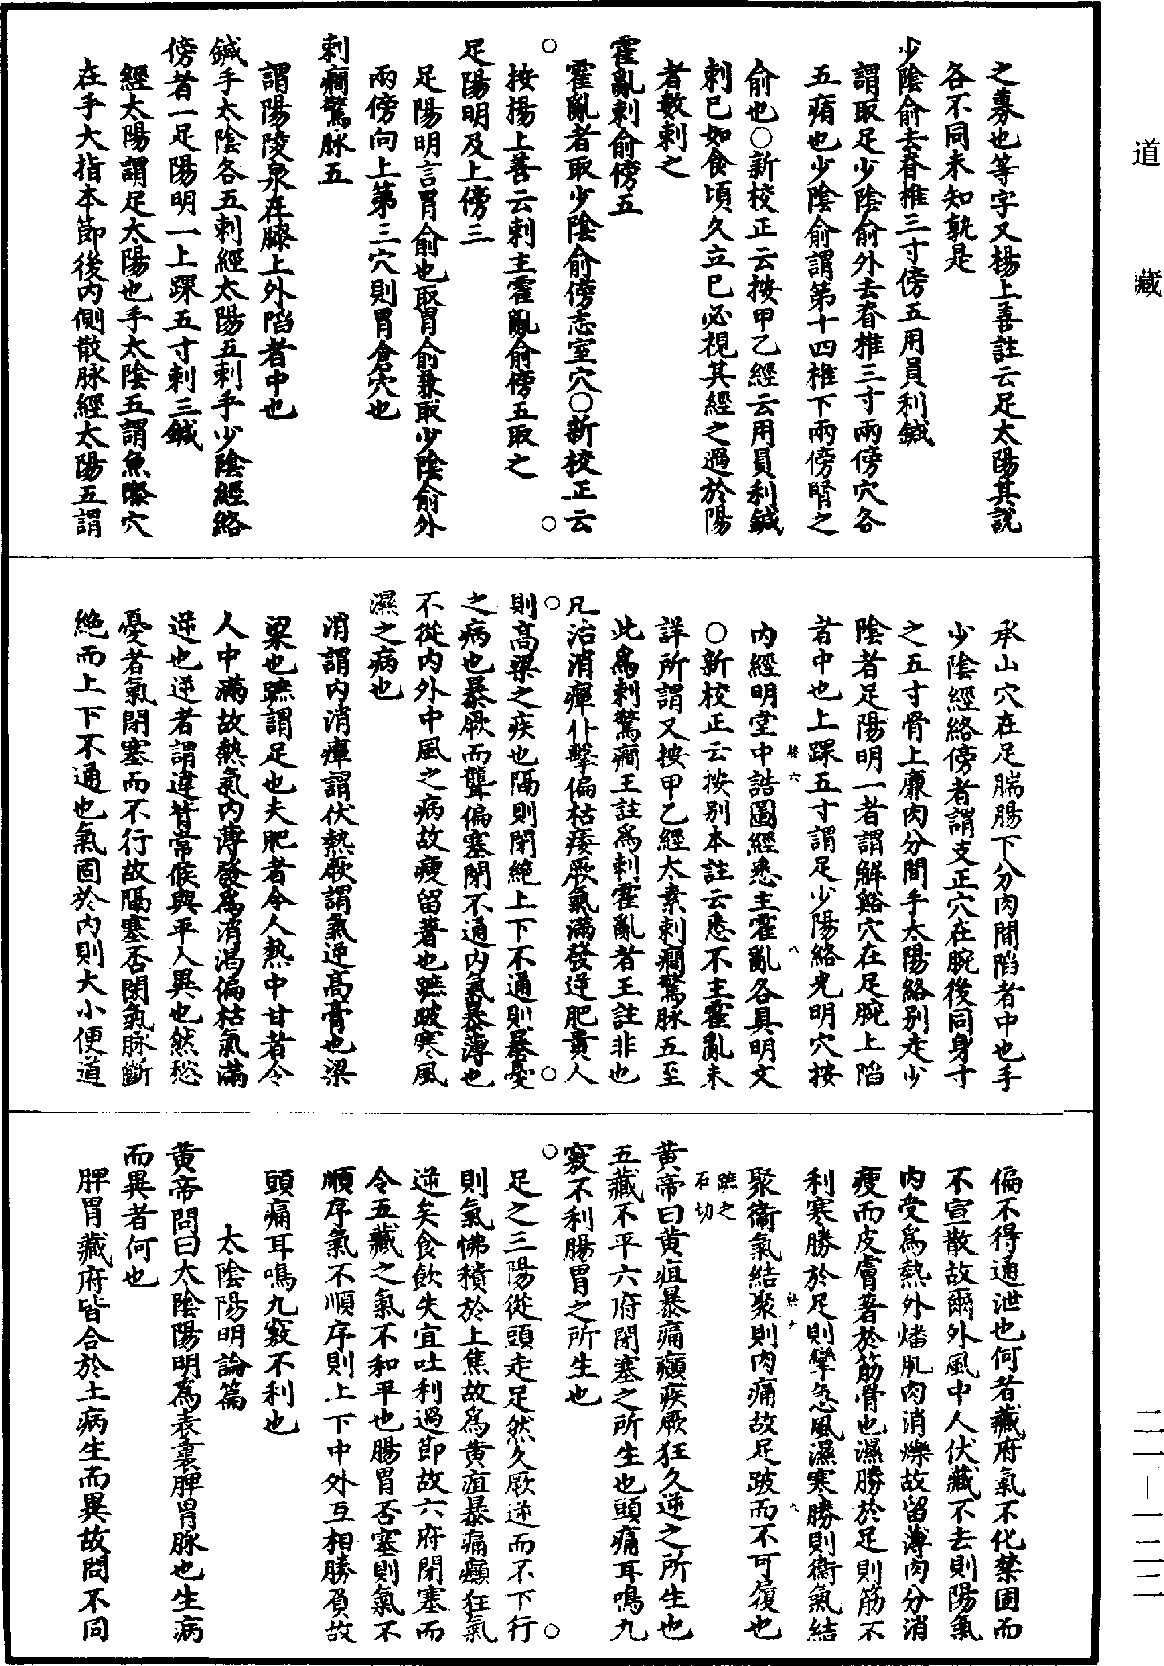 之募也等字又楊上善註云足太陽其說
各不同未知孰是
少陰俞去脊椎三寸傍五用員利鍼
謂取足少陰俞外去脊椎三寸兩傍穴各
五痏也少陰俞謂第十四椎下兩傍腎之
俞也○新校正云按甲乙經云用員利鍼
刺已如食頃久立已必視其經之過於陽
者數刺之
霍亂刺俞傍五
霍亂者取少陰俞傍志室穴○新校正云
按楊上善云刺主霍亂俞傍五取之
足陽明及上傍三
足陽明言胃俞也取胃俞兼取少陰俞外
兩傍向上第三穴則胃倉穴也
刺癇驚脉五
謂陽陵泉在膝上外陷者中也
鍼手太陰各五刺經太陽五刺手少陰經絡
傍者一足陽明一上踝五寸刺三鍼
經太陽謂足太陽也手太陰五謂魚際穴
在手大指本節後内側散脉經太陽五謂
承山穴在足腨腸下分肉間陷者中也手
少陰經絡傍者謂支正穴在腕後同身寸
之五寸骨上廉肉分間手太陽絡别走少
陰者足陽明一者謂解谿穴在足腕上陷
者中也上踝五寸謂足少陽絡光明穴按
内經明堂中誥圖經悉主霍亂各具明文
○新校正云按别本註云悉不主霍亂未
詳所謂又按甲乙經太素刺癇驚脉五至
此為刺驚癇王註為刺霍亂者王註非也
凡治消癉仆擊偏枯痿厥氣滿發逆肥貴人
則高梁之疾也隔則閉絶上下不通則暴憂
之病也暴厥而聾偏塞閉不通内氣暴薄也
不從内外中風之病故瘦留著也蹠跛寒風
濕之病也
消謂内消癉謂伏熱厥謂氣逆高膏也梁
粱也蹠謂足也夫肥者令人熱中甘者令
人中滿故熱氣内薄發為消渴偏枯氣滿
逆也逆者謂違背常候與平人異也然愁
憂者氣閉塞而不行故隔塞否閉氣脉斷
絶而上下不通也氣固於内則大小便道
偏不得通泄也何者藏府氣不化禁固而
不宣散故爾外風中人伏藏不去則陽氣
内受為熱外燔肌肉消爍故留薄肉分消
瘦而皮膚著於筋骨也濕勝於足則筋不
利寒勝於足則攣急風濕寒勝則衛氣結
聚衛氣結聚則肉痛故足跛而不可履也
蹠之
石切
黄帝曰黄疸暴痛癲疾厥狂久逆之所生也
五藏不平六府閉塞之所生也頭痛耳鳴九
竅不利腸胃之所生也
足之三陽從頭走足然久厥逆而不下行
則氣怫積於上焦故為黄疸暴痛癲狂氣
逆矣食飲失宜吐利過節故六府閉塞而
令五藏之氣不和平也腸胃否塞則氣不
順序氣不順序則上下中外互相勝負故
頭痛耳鳴九竅不利也
太陰陽明論篇
黄帝問曰太陰陽明為表裏脾胃脉也生病
而異者何也
脾胃藏府皆合於土病生而異故問不同
道藏
二一—一二二